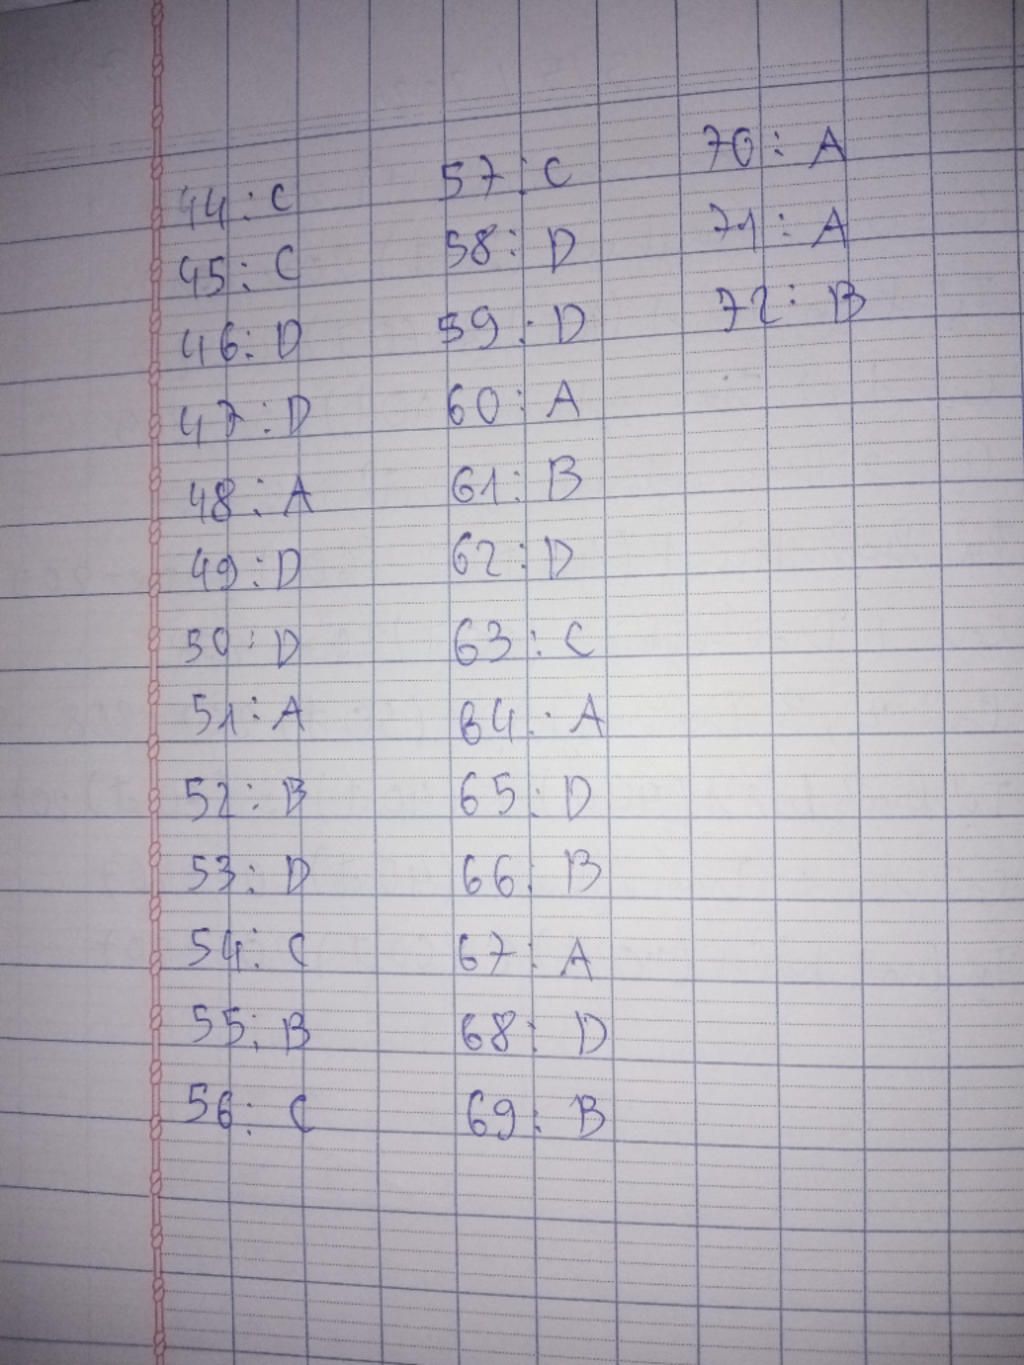 44: C
45: C
46: D
47: D
48: A
49: D
50: D
51: A
52: B
53: D
54: C
55: B
56: C
57: C
58: D
59: D
60: A
61: B
62: D
63: C
64. A
65: D
66: B
67: A
68: D
69: B
70: A
71: A
72: B